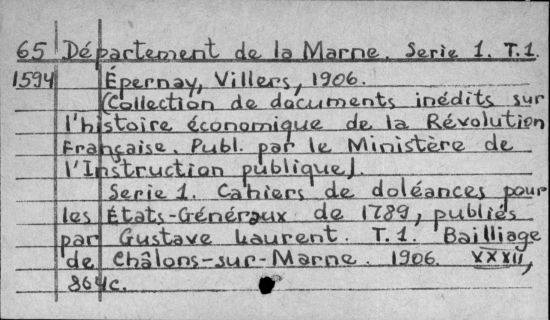 65 Département de la Marne. Serie 1. T.1.
1594 Épernay, Villers, 1906.
(Collection de documents inédits sur
l'histoire économique de la Révolution
Française. Publ. par le Ministère de
l'Instruction publique).
Serie 1. Cahiers de doléances pour
les États-Généraux de 1789, publiés
par Gustave Laurent. T.1. Bailliage
de Châlons-sur-Marne. 1906. XXXII,
864c.